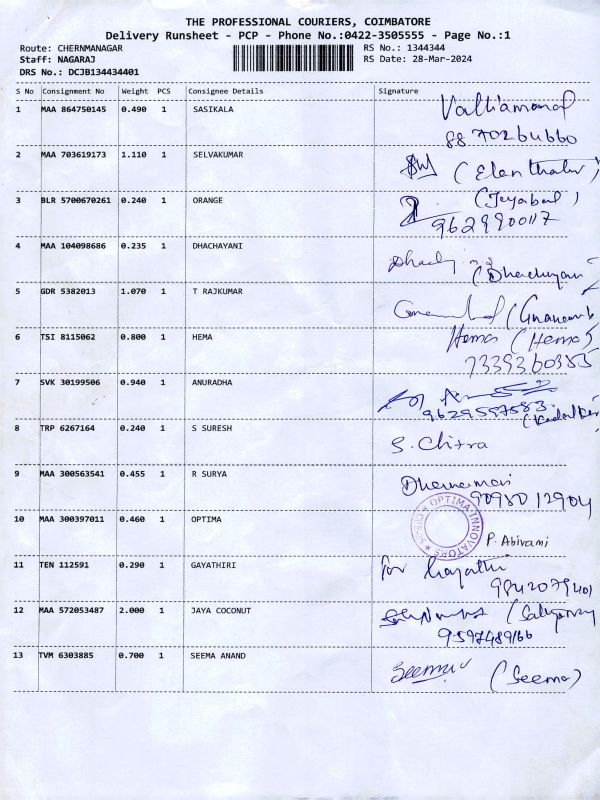 THE PROFESSIONAL COURIERS, COIMBATORE
Delivery Runsheet - PCP - Phone No.:0422-3505555 - Page No.:1
Route: CHERNMANAGAR RS No.: 1344344
Staff: NAGARAJ RS Date: 28-Mar-2024
DRS No.: DCJB134434401
S No Consignment No Weight PCS Consignee Details Signature
1 MAA 864750145 0.490 1 SASIKALA
2 MAA 703619173 1.110 1 SELVAKUMAR
3 BLR 5700670261 0.240 1 ORANGE
9629900117
4 MAA 104098686 0.235 1 DHACHAYANI
5 GDR 5382013 1.070 1 T RAJKUMAR
6 TSI 8115062 0.800 1 HEMA Hema (Hema)
7339360383
7 SVK 30199506 0.940 1 ANURADHA
9629557583
8 TRP 6267164 0.240 1 S SURESH S. Chitra
9 MAA 300563541 0.455 1 R SURYA
90980 12904
10 MAA 300397011 0.460 1 OPTIMA OPTIMA INNOVATORS P. Abirami
11 TEN 112591 0.290 1 GAYATHIRI for Gayathri
9942079401
12 MAA 572053487 2.000 1 JAYA COCONUT
9597489166
13 TVM 6303885 0.700 1 SEEMA ANAND Seema (Seema)